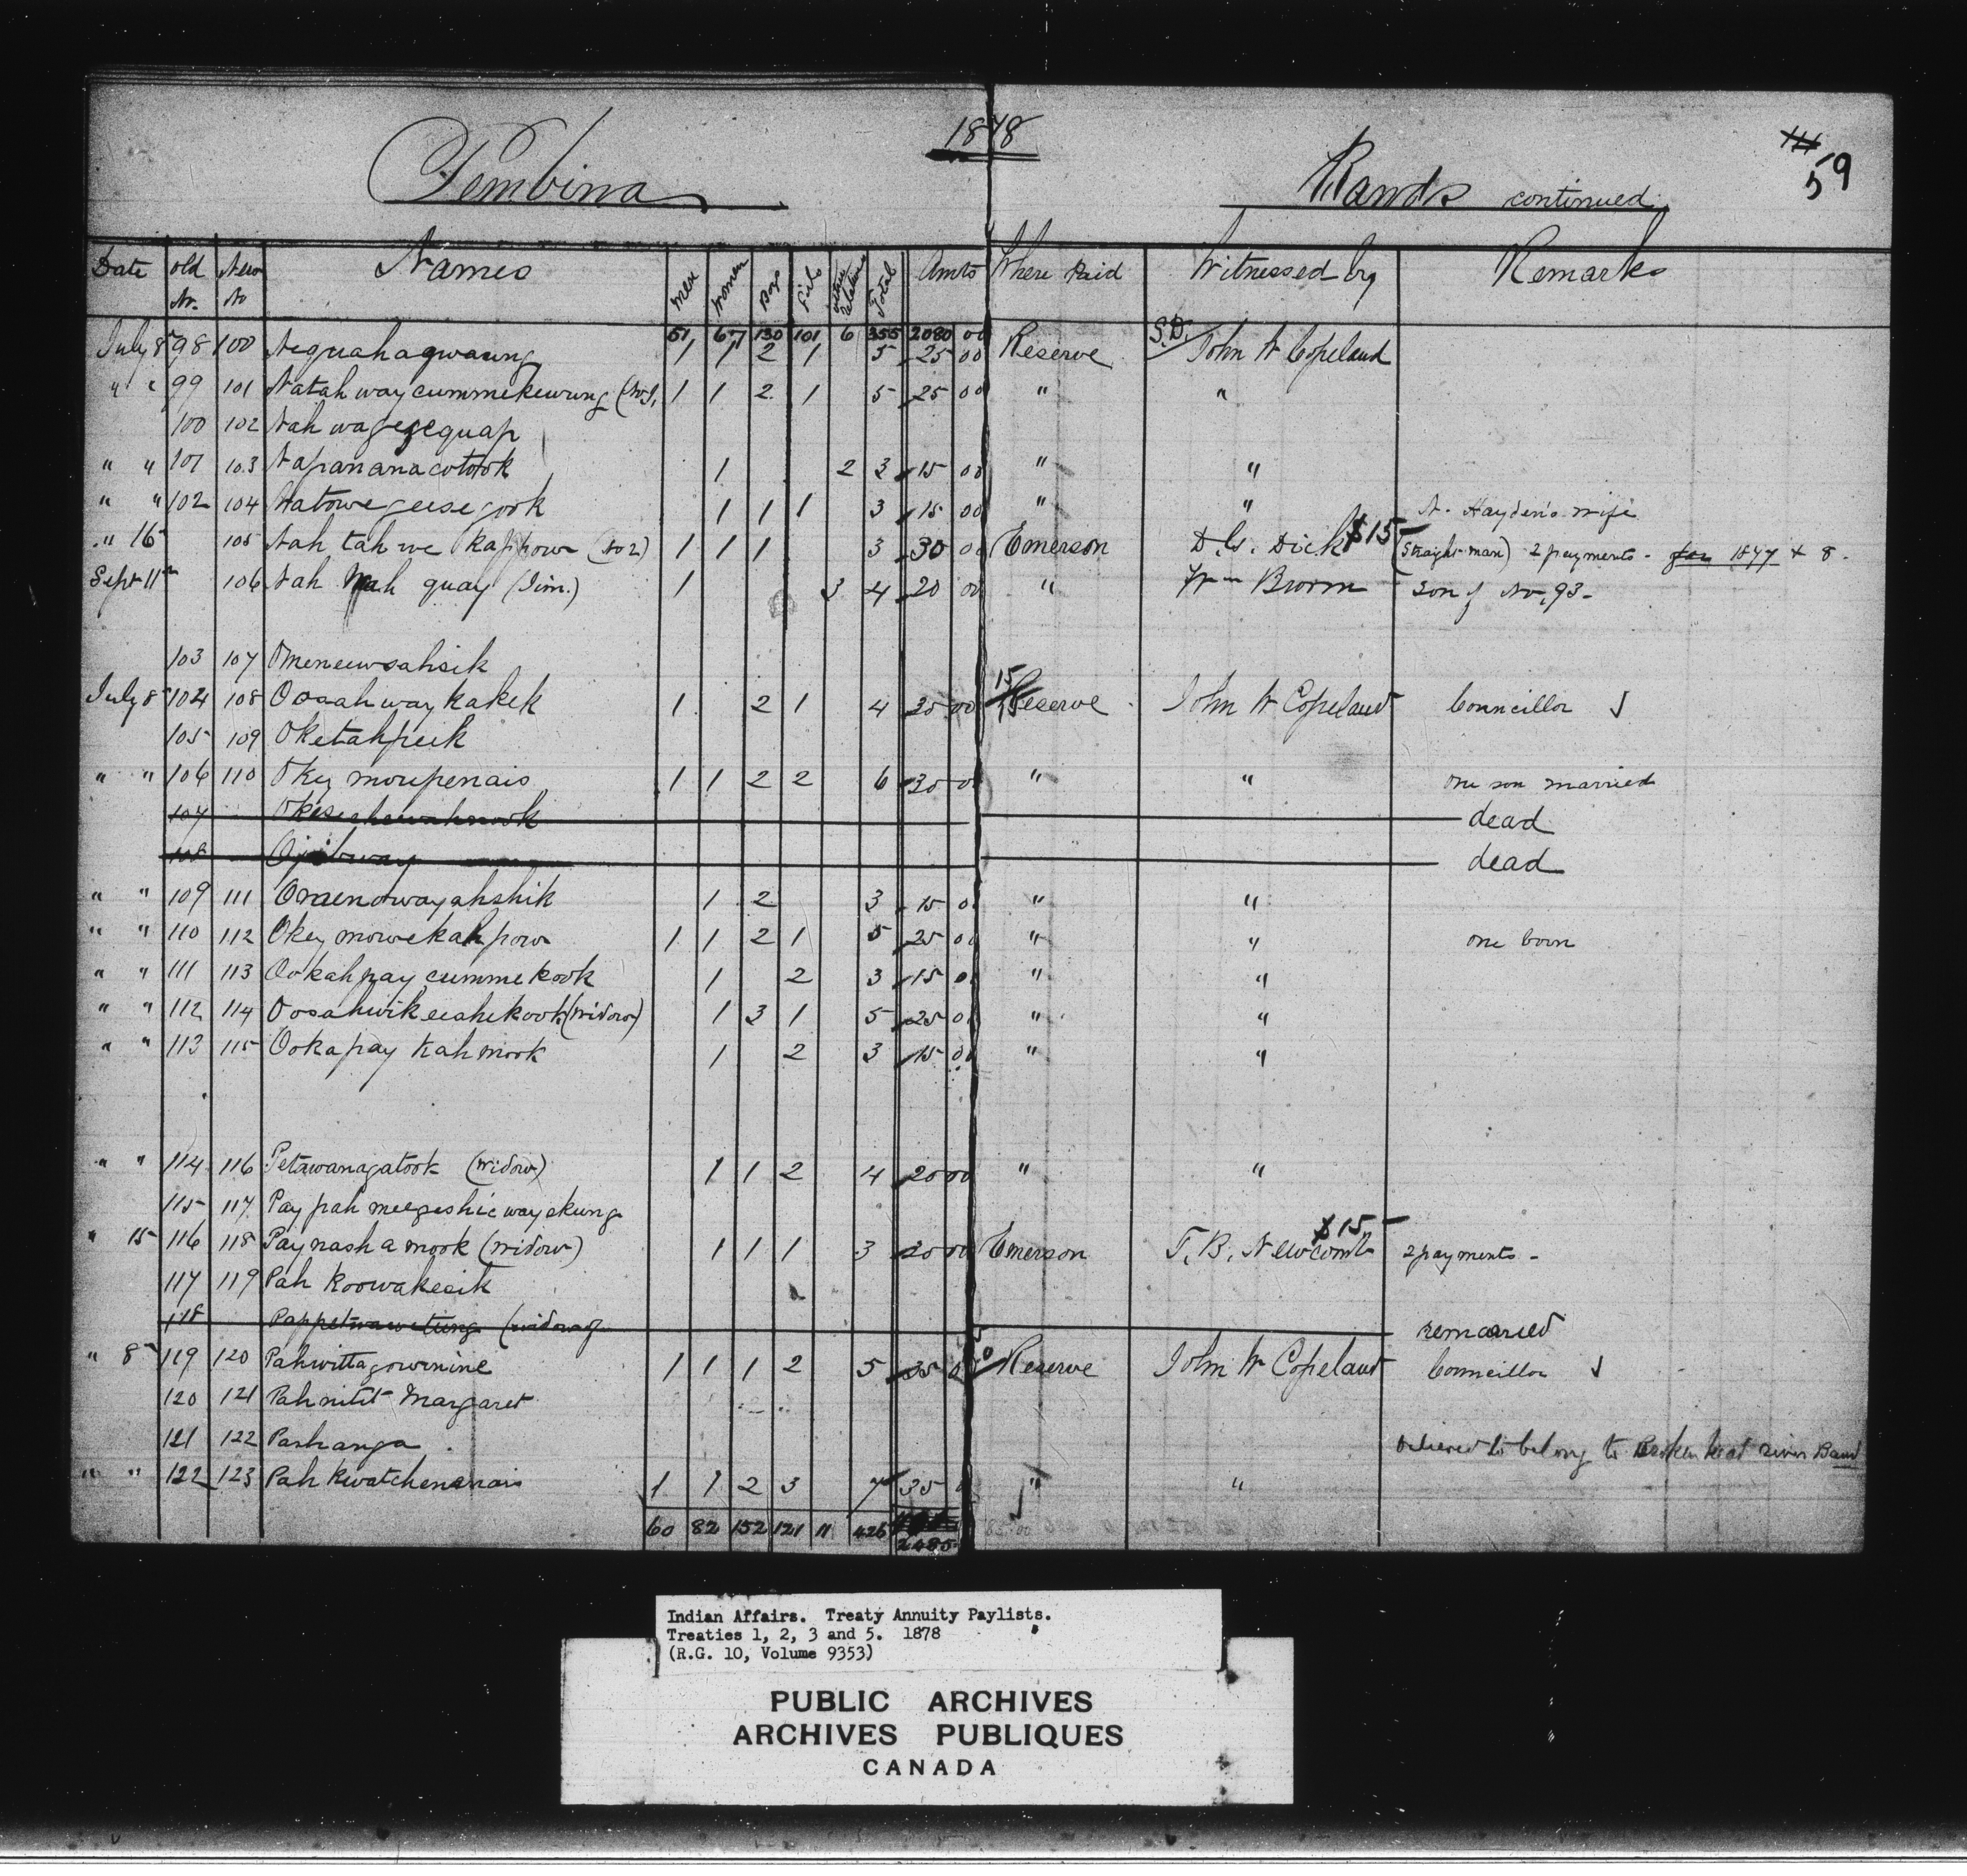 1878
Pembina Bands continued
59
Date old No. New No Names Men Women Boys Girls other relations Total Amts Where Paid Witnessed by Remarks
51 67 130 101 6 355 2080 00
July 8 98 100 Neguahagwaung 1 1 2 1 5 25 00 Reserve S.D. John W Copeland
" " 99 101 Natahwaycummekewung 1 1 2 1 5 25 00 " "
100 102 Nahwagegequap
" " 101 103 Napananacotook 1 2 3 15 00 " "
" " 102 104 Natowegeesegook 1 1 1 3 15 00 " " N. Hayden's wife
" 16 105 Nah tah we kappow (No 2) 1 1 1 3 30 00 Emerson D.G. Dick $15 (Straight-man) 2 payments - for 1877 & 8.
Sept 11th 106 Nah quay (Jim.) 1 3 4 20 00 " Wm Brown Son of No. 93-
103 107 Omeneewsahsik
July 8 104 108 Oosahwaykakek 1 2 1 4 00 15 Reserve John W Copeland Councillor
105 109 Oketahpeik
" " 106 110 Okey moupenais 1 1 2 2 6 30 0 " " one son married
107 dead
108 Ojibway dead
" " 109 111 Omenowayahshik 1 2 3 15 0 " "
" " 110 112 Okey mowekahpow 1 1 2 1 5 25 00 " " one born
" " 111 113 Ookahpaycummekook 1 2 3 15 0 " "
" " 112 114 Oosahwikeeahekook (widow) 1 3 1 5 25 0 " "
" " 113 115 Ookapay kahmook 1 2 3 15 0 " "
" " 114 116 Petawanagatook (widow) 1 1 2 4 20 00 " "
115 117 Pay pah meegeshic wayskung
" 15 116 118 Paynash a mook (widow) 1 1 1 3 00 Emerson T. B. Newcomb $15 2 payments -
117 119 Pah koowakecik
118 (widow) remarried
" 8 119 120 Pahwittagowinine 1 1 1 2 5 Reserve John W Copeland Councillor
120 121 Pahnitit Margaret
121 122 Pashanga believed to belong to Broken head river Band
" " 122 123 Pah kwatchenanais 1 1 2 3 7 35 0 " "
60 82 152 121 11 426 2485
Indian Affairs. Treaty Annuity Paylists.
Treaties 1, 2, 3 and 5. 1878
(R.G. 10, Volume 9353)
PUBLIC ARCHIVES
ARCHIVES PUBLIQUES
CANADA